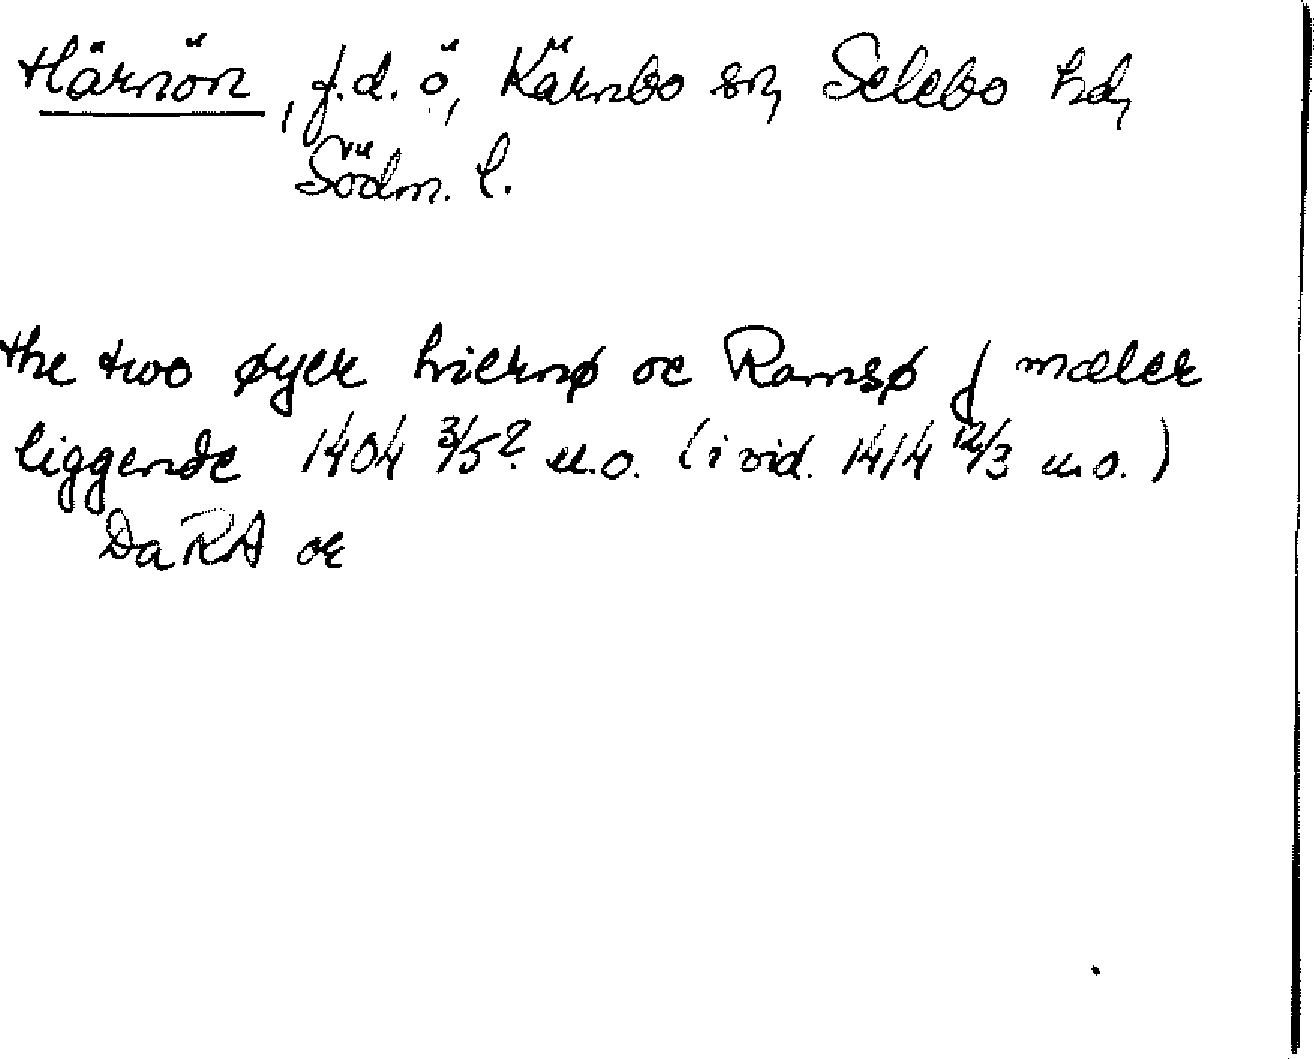 Härnön, f.d. ö, Kärnbo sn, Selebo hd,
Södm. l.
the two øyer hviernø oc Ramsø j mæler
liggende 1404 3/5? u.o. (i vid. 1414 12/3 u.o.)
DaRA or